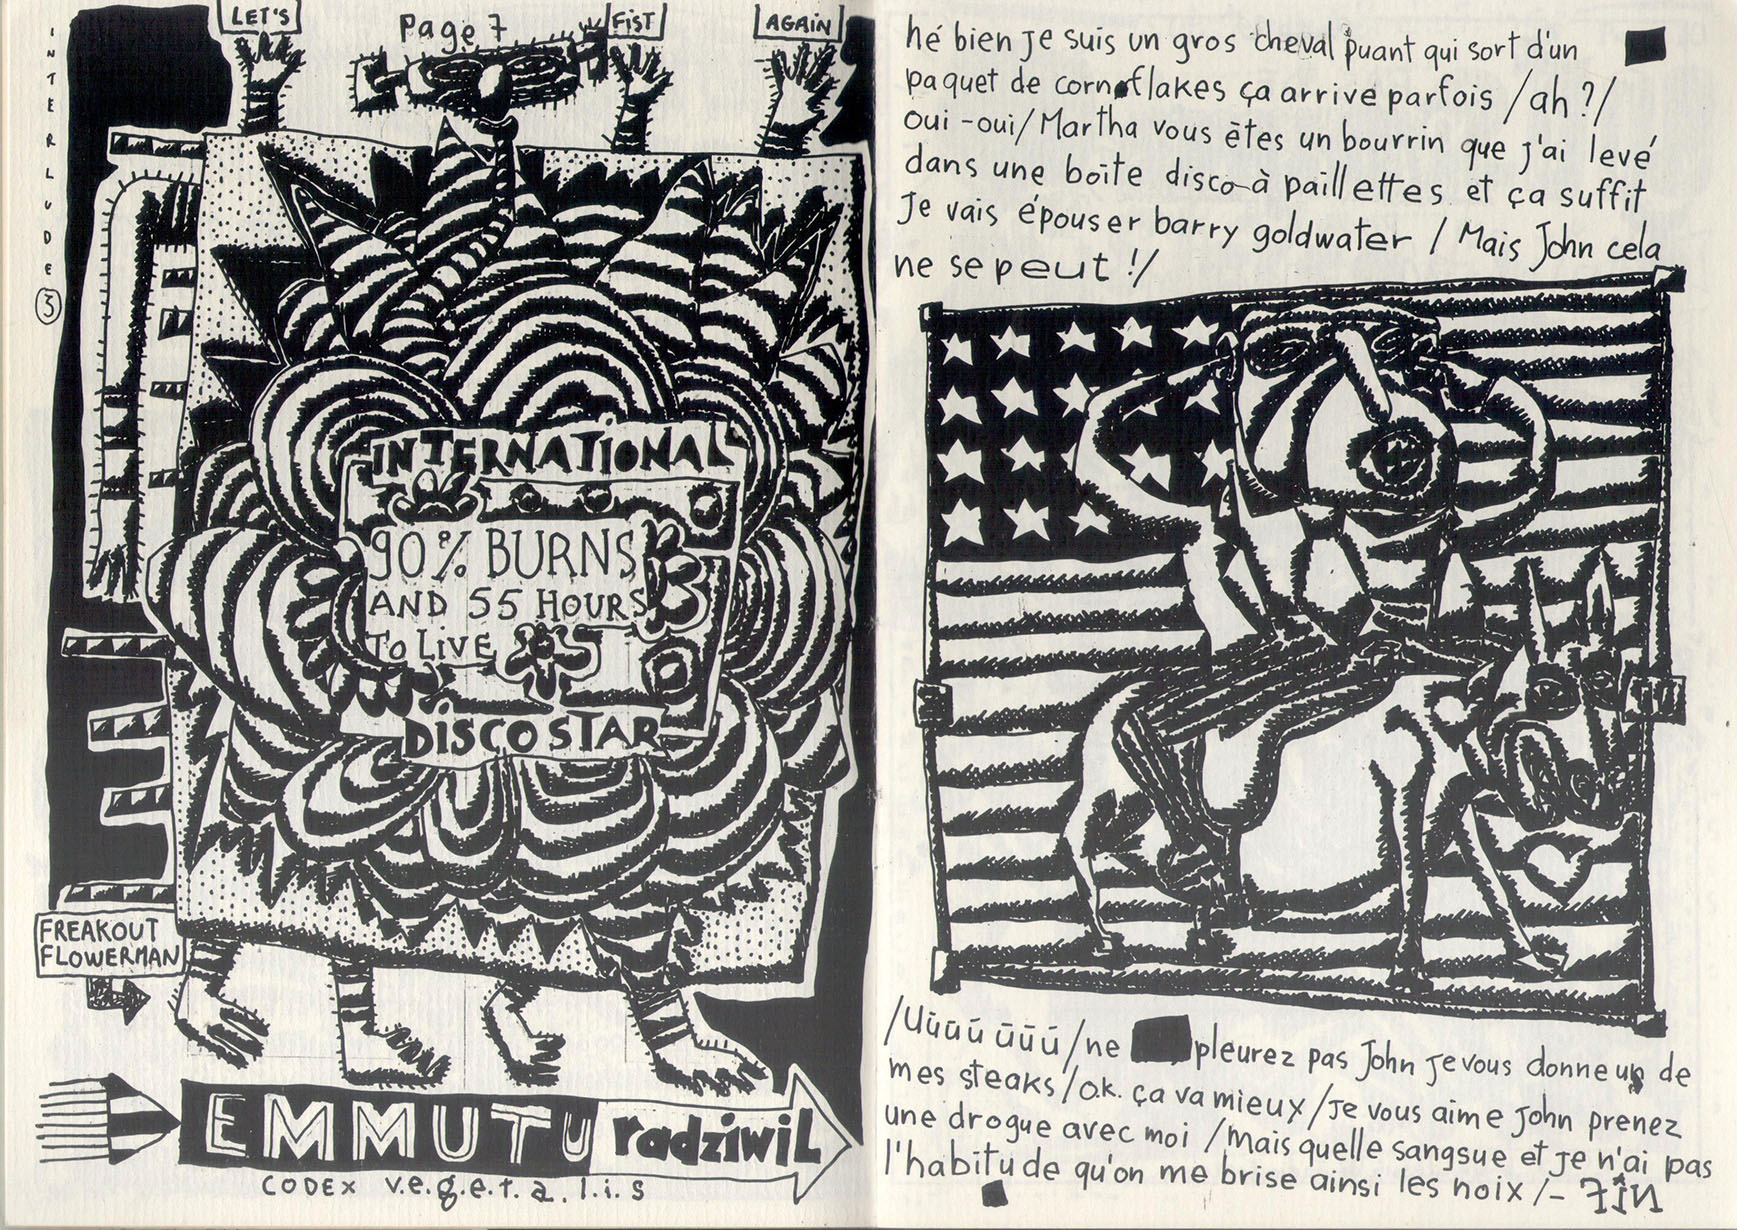 INTERLUDE
3
LET'S
Page 7
FIST
AGAIN
INTERNATIONAL
90% BURNS
AND 55 HOURS
TO LIVE
DISCO STAR
FREAKOUT
FLOWERMAN
EMMUTU radziwiL
CODEX v.e.g.e.t.a.l.i.s
hé bien je suis un gros cheval puant qui sort d'un
paquet de cornflakes ça arrive parfois /ah ?/
oui-oui/Martha vous êtes un bourrin que j'ai levé
dans une boîte disco à paillettes et ça suffit
je vais épouser barry goldwater / Mais John cela
ne se peut !/
/Uūūú ūūú/ne pleurez pas John je vous donne un de
mes steaks/o.k. ça va mieux/je vous aime John prenez
une drogue avec moi /mais quelle sangsue et je n'ai pas
l'habitude qu'on me brise ainsi les noix /- FIN